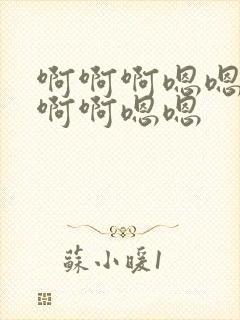 啊啊啊嗯嗯
啊啊嗯嗯
蘇小暖1